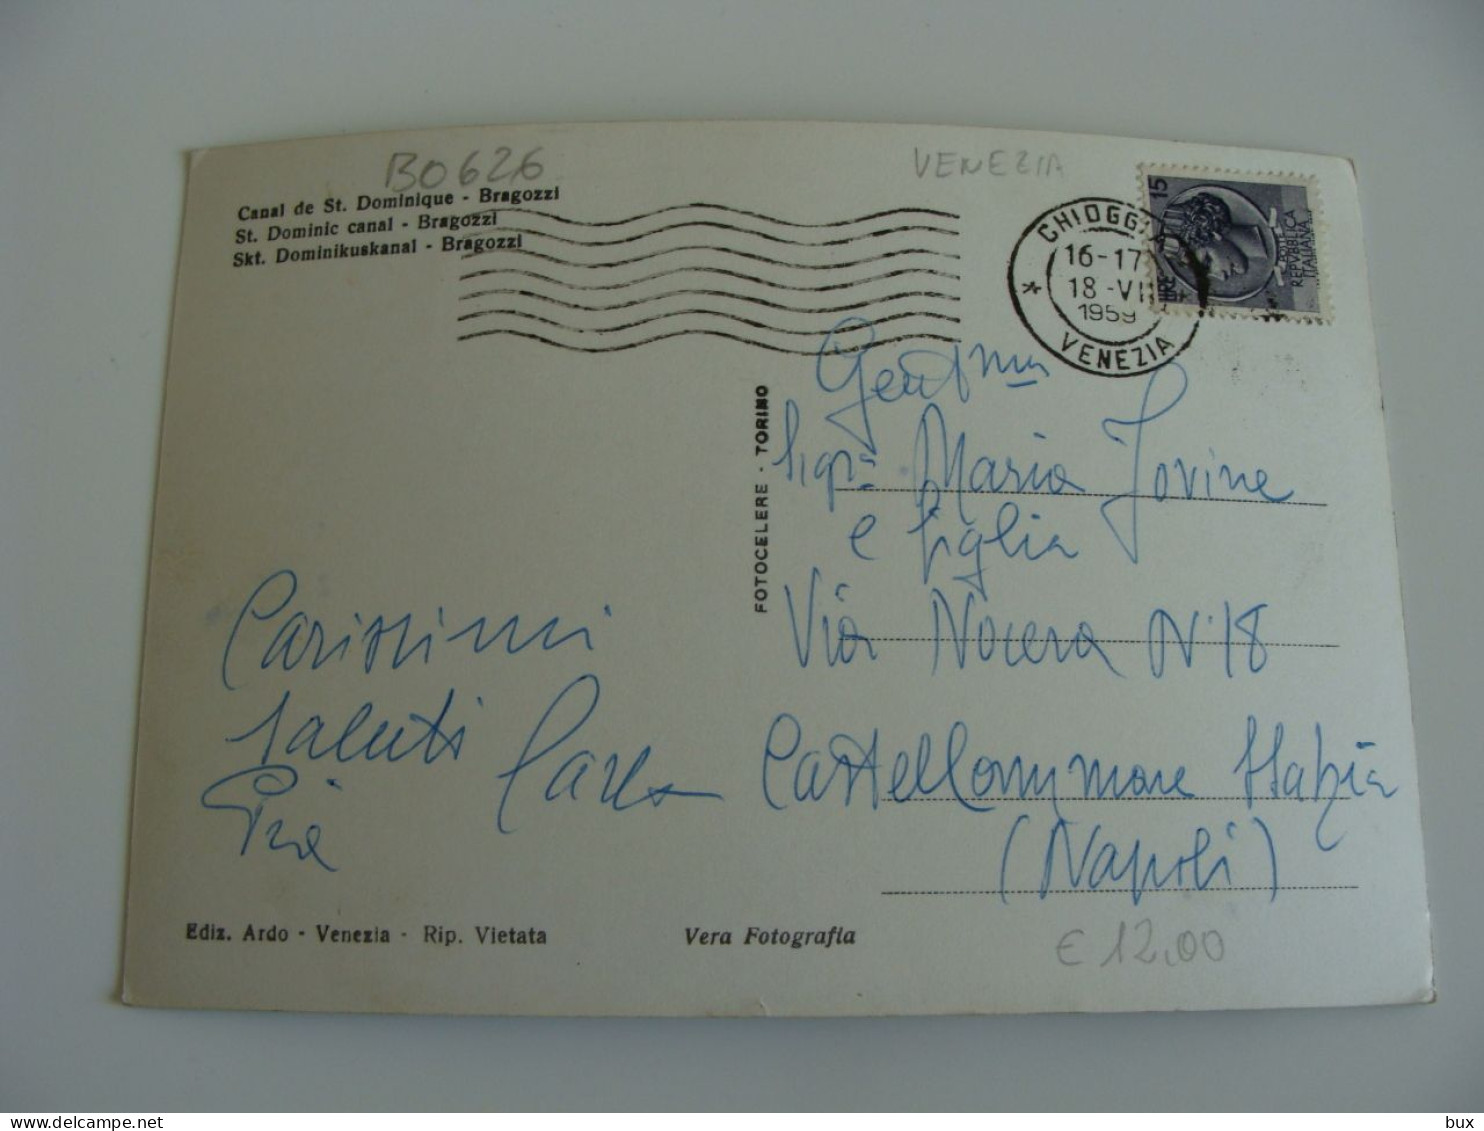 B0626
VENEZIA
Canal de St. Dominique - Bragozzi
St. Dominic canal - Bragozzi
Skt. Dominikuskanal - Bragozzi
CHIOGGIA
16-17
18-VI
1959
VENEZIA
15
LIRE
POSTE
REPVBBLICA
ITALIANA
FOTOCELERE - TORINO
Gent.ma
Sig.ra Maria Jovine
e figlia
Via Nocera N. 18
Castellommare Stabia
(Napoli)
Carissimi
saluti Carla
Pia
Ediz. Ardo - Venezia - Rip. Vietata
Vera Fotografia
€ 12,00
bux